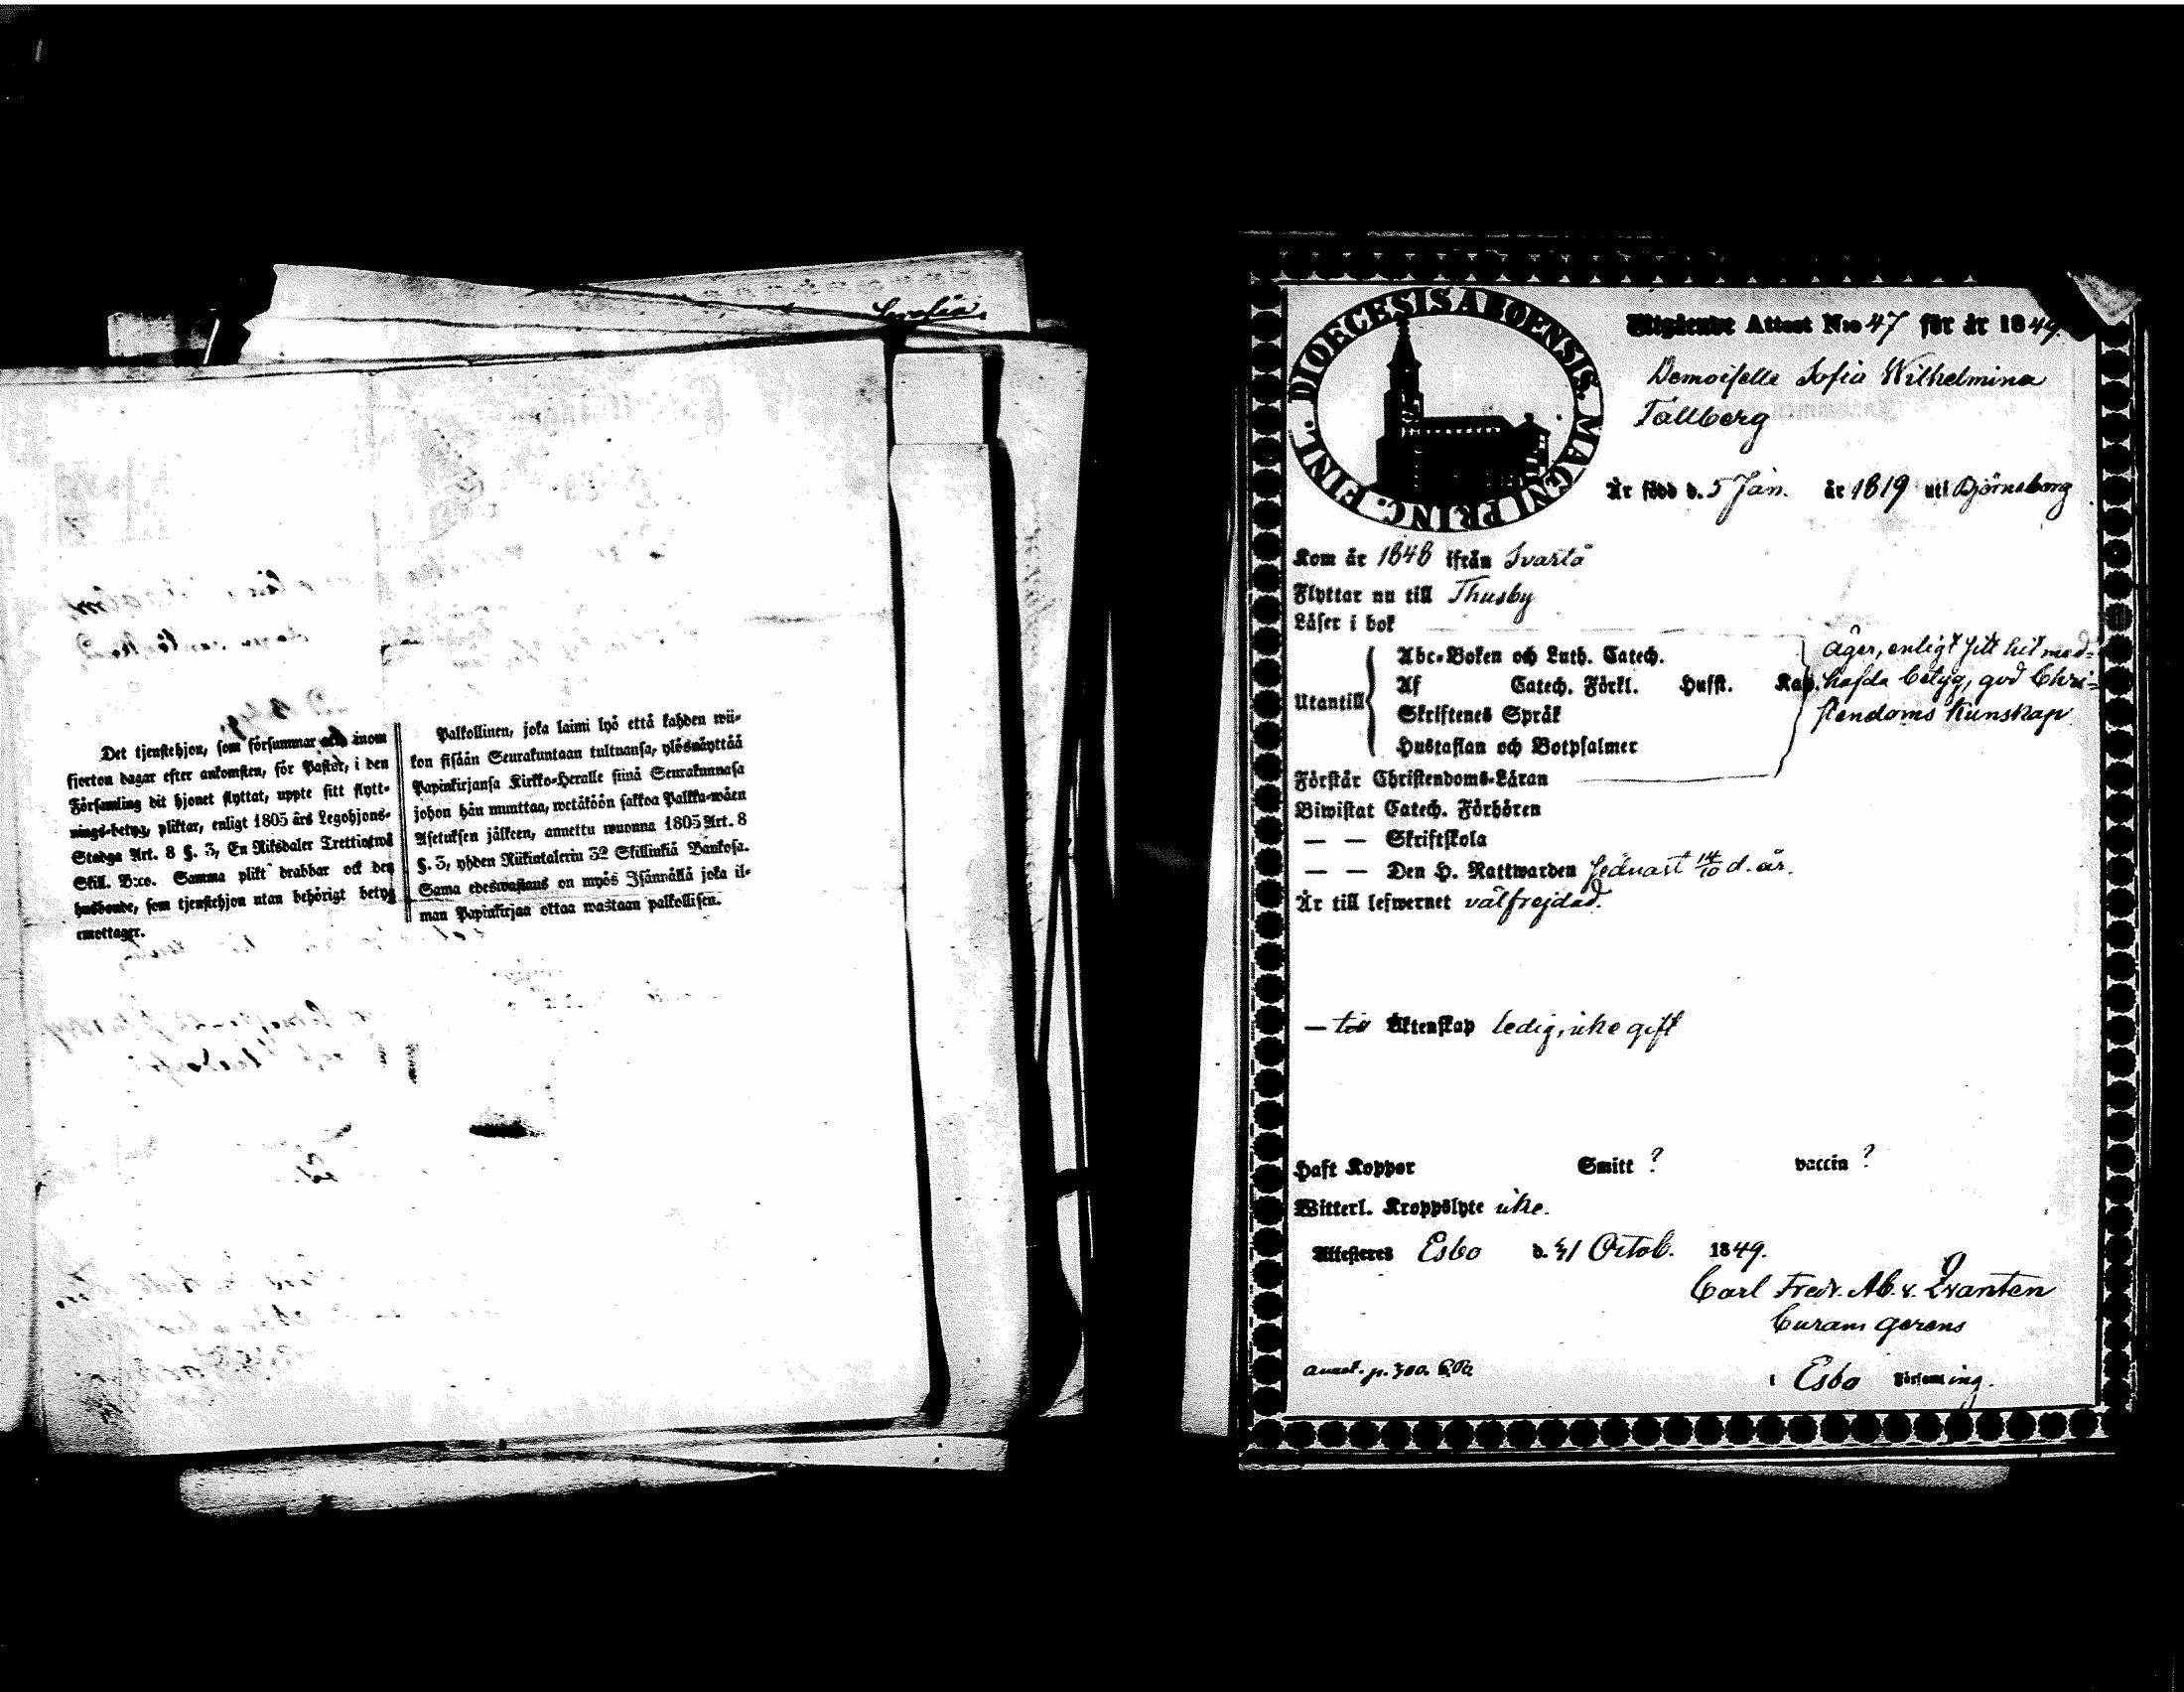 Det tjenstehjon, som försummar att inom
fjorton dagar efter ankomsten, för Pastor, i den
Församling dit hjonet flyttat, uppte sitt flytt-
nings-betyg, pliktar, enligt 1805 års Legohjons-
Stadga Art. 8 §. 3, En Riksdaler Trettiotwå
Skill. B:co. Samma plikt drabbar ock den
husbonde, som tjenstehjon utan behörigt betyg
emottager.
Palkollinen, joka laimi lyö että kahden wii-
kon sisään Seurakuntaan tultuansa, ylösnäyttää
Papinkirjansa Kirkko-Heralle siinä Seurakunnasa
johon hän muuttaa, wetäköön sakkoa Palkka-wäen
Asetuksen jälkeen, annettu wuonna 1805 Art. 8
§. 3, yhden Riikintalerin 32 Skillinkiä Bankosa.
Sama edeswastaus on myös Isännällä joka il-
man Papinkirjaa ottaa wastaan palkollisen.
DIOECESIS ABOENSIS. MAGNI PRINC. FINL.
Utgående Attest N:o 47 för år 1849.
Demoiselle Sofia Wilhelmina
Tallberg
Är född d. 5 Jan. år 1819 uti Björneborg
Kom år 1848 ifrån Svartå
Flyttar nu till Thusby
Läser i bok
Abc-Boken och Luth. Catech.
Utantill Af Catech. Förkl. Husst. Kap.
Skriftenes Språk
Hustaflan och Botpsalmer
Äger, enligt sitt hit med-
hafda betyg, god Chri-
stendoms Kunskap
Förstår Christendoms-Läran
Biwistat Catech. Förhören
— — Skriftskola
— — Den H. Nattwarden sednast 14/10 d. år.
Är till lefwernet välfrejdad.
— till Äktenskap ledig, icke gift
Haft Koppor Smitt ? vaccin ?
Witterl. Kroppslyte icke.
Attesteres Esbo d. 31 Octob. 1849.
Carl Fredr. Ab. v. Qvanten
Curam gerens
i Esbo Församling.